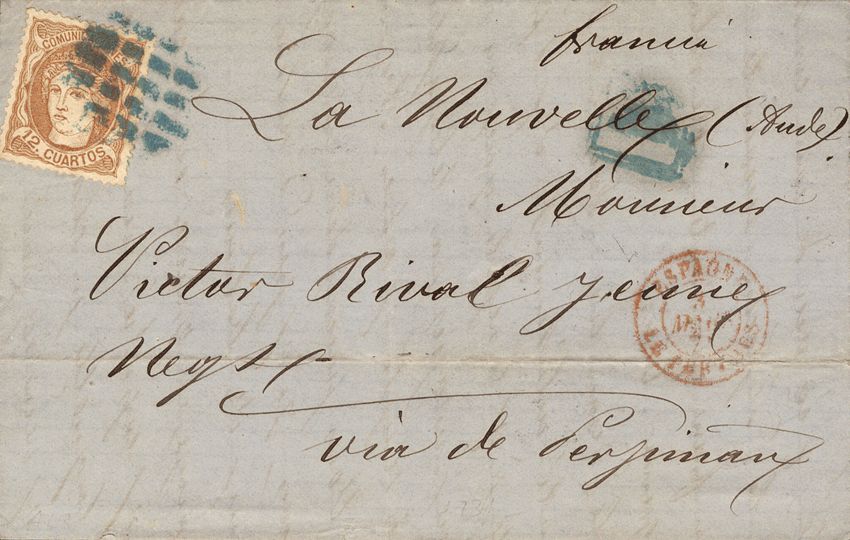 COMUNICACIONES ESPAÑA
12. CUARTOS
francia
La Nouvelle (Aude)
Monsieur
Victor Rival Jeune
Negt
via de Perpiñan
ESPAGNE
LE PERTHUS